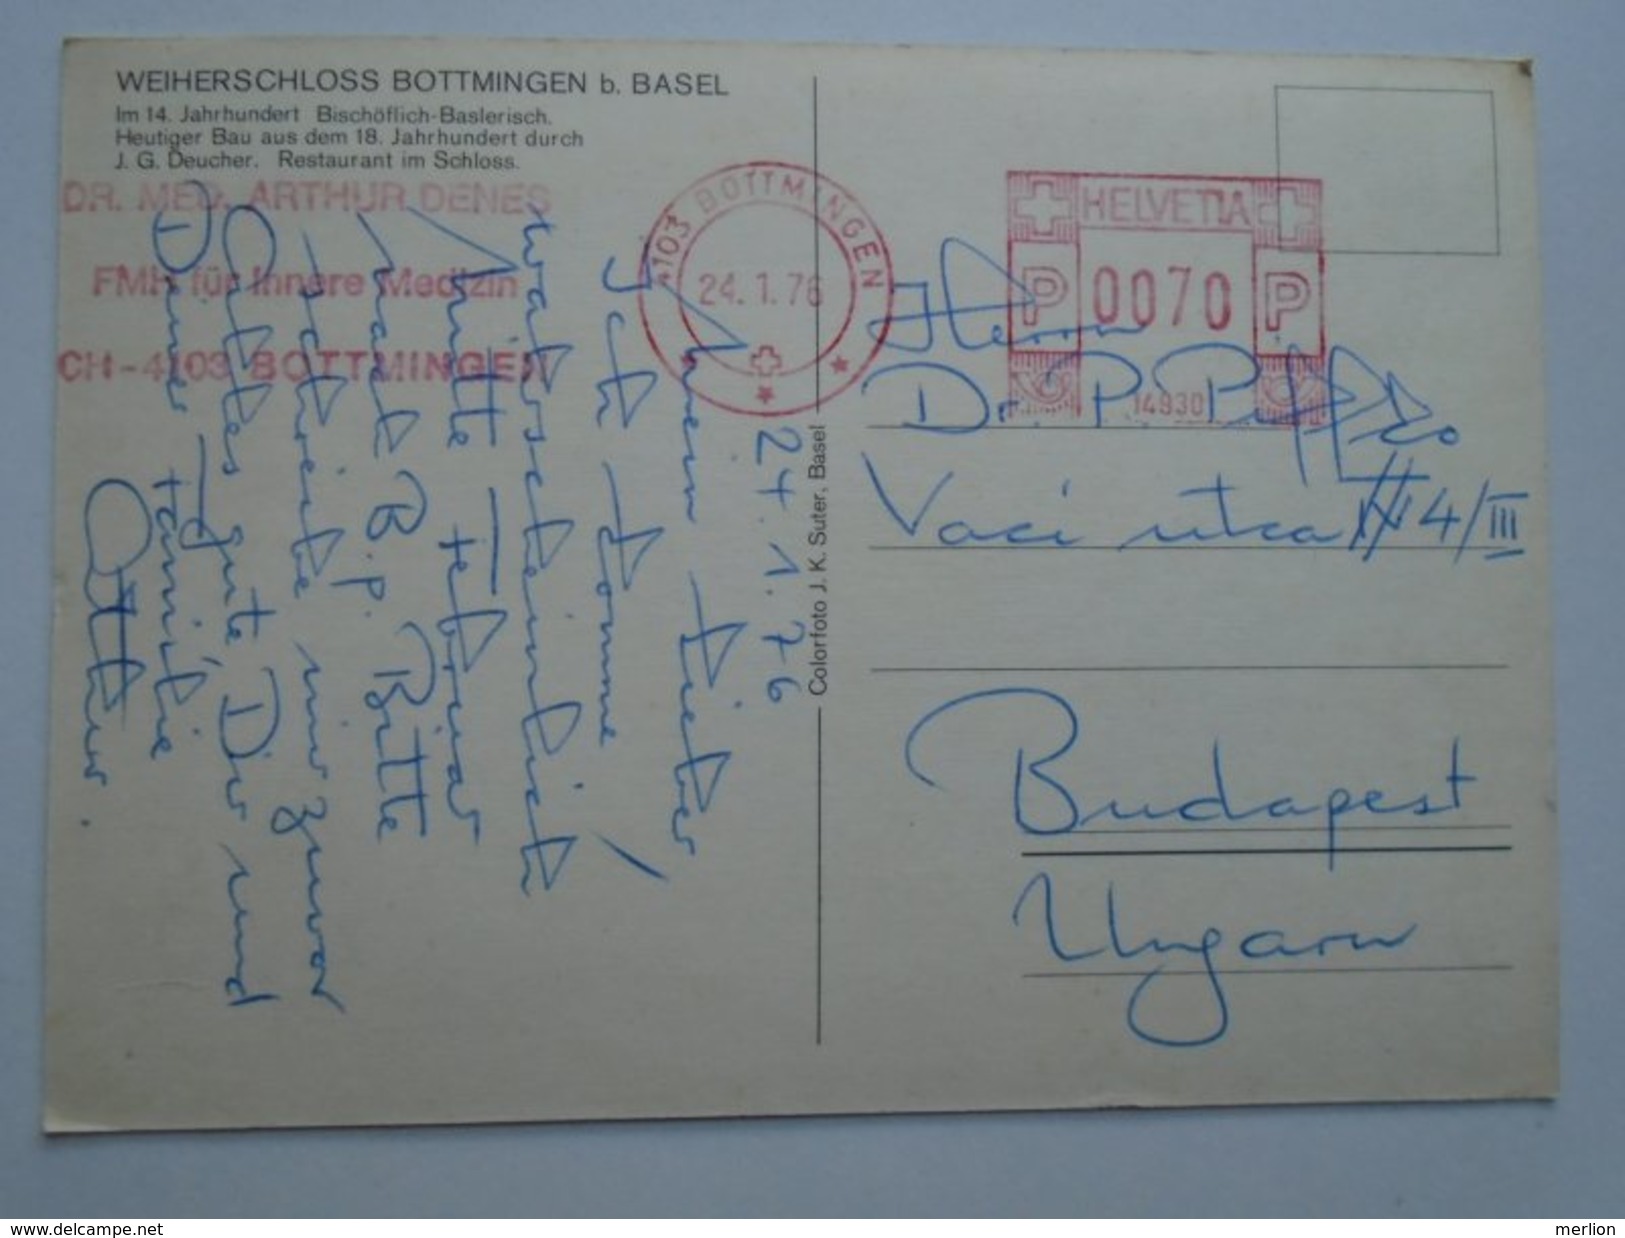 WEIHERSCHLOSS BOTTMINGEN b. BASEL
Im 14. Jahrhundert Bischöflich-Baslerisch.
Heutiger Bau aus dem 18. Jahrhundert durch
J. G. Deucher. Restaurant im Schloss.
DR. MED. ARTHUR DENES
FMH für Innere Medizin
CH-4103 BOTTMINGEN
4103 BOTTMINGEN
24.1.76
HELVETIA
P 0070 P
14930
24.1.76
Mein Lieber
Ich komme
wahrscheinlich
Mitte Februar
nach B.P. Bitte
schreibe mir zuvor
Alles gute Dir und
Deiner Familie
Colorfoto J. K. Suter, Basel
Herrn
Dr. P.
Vaci utca 4/III
Budapest
Ungarn
www.delcampe.net
merlion